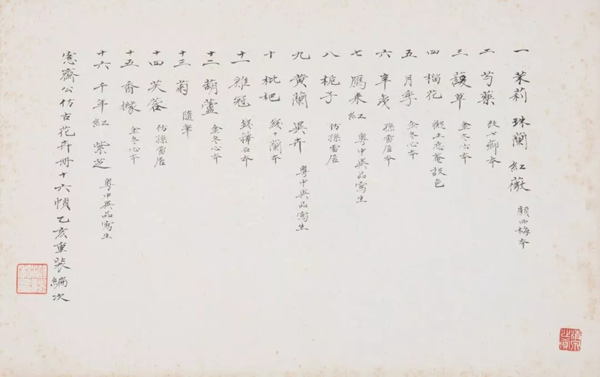 一 茉莉 珠蘭 紅薇 顧西梅本
二 芍藥 改七薌本
三 諼草 金冬心本
四 榴花 王忘庵設色
五 月季 金冬心本
六 辛夷 孫雪居本
七 雁來紅 粵中異品寫生
八 梔子 仿孫雪居
九 黃蘭 異卉 粵中異品寫生
十 枇杷 錢十蘭本
十一 雞冠 錢籜石本
十二 葫蘆 金冬心本
十三 菊 隨筆
十四 芙蓉 仿孫雪居
十五 香櫞 金冬心本
十六 千年紅 紫芝 粵中異品寫生
愙齋公仿古花卉冊十六幀乙亥重裝編次